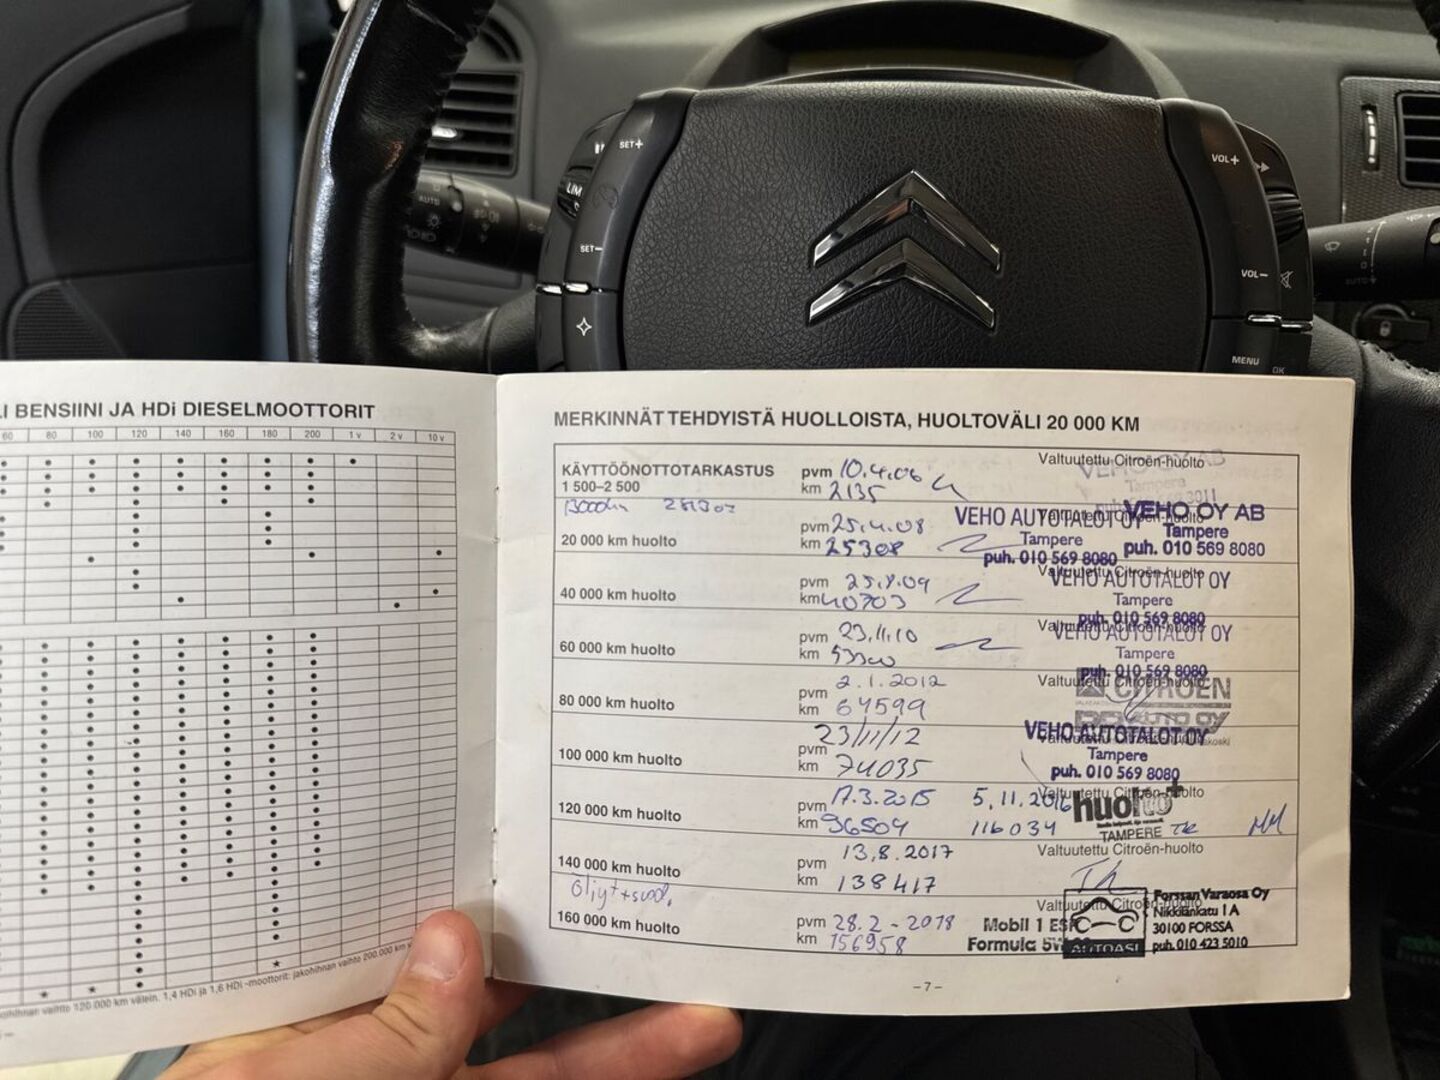 SET+
LIM
SET−
AUTO
VOL+
VOL−
MENU
OK
AUTO
I BENSIINI JA HDi DIESELMOOTTORIT
60 80 100 120 140 160 180 200 1 v 2 v 10 v
hihnan vaihto 120 000 km välein. 1,4 HDi ja 1,6 HDi -moottorit: jakohihnan vaihto 200.000 km
MERKINNÄT TEHDYISTÄ HUOLLOISTA, HUOLTOVÄLI 20 000 KM
KÄYTTÖÖNOTTOTARKASTUS pvm 10.4.06 Valtuutettu Citroën-huolto
1 500–2 500 km 2135
VEHO OY AB
Tampere
20 000 km huolto pvm 25.4.08
km 25308
VEHO AUTOTALOT OY
Tampere
puh. 010 569 8080
VEHO OY AB
Tampere
puh. 010 569 8080
40 000 km huolto pvm 25.8.09 Valtuutettu Citroën-huolto
km 40703
VEHO AUTOTALOT OY
Tampere
puh. 010 569 8080
60 000 km huolto pvm 23.11.10 Valtuutettu Citroën-huolto
km 53300
VEHO AUTOTALOT OY
Tampere
puh. 010 569 8080
80 000 km huolto pvm 2.1.2012 Valtuutettu Citroën-huolto
km 64599
CITROËN
AUTO OY
100 000 km huolto pvm 23/11/12
km 74035
VEHO AUTOTALOT OY
Tampere
puh. 010 569 8080
120 000 km huolto pvm 17.3.2015 5.11.2016 Valtuutettu Citroën-huolto
km 96504 116034
huolto+
TAMPERE
140 000 km huolto pvm 13.8.2017 Valtuutettu Citroën-huolto
km 138417
Öljyt+suod.
160 000 km huolto pvm 28.2-2018 Valtuutettu Citroën-huolto
km 156958
Mobil 1 ESP
Formula 5W
AUTOASI
Forssan Varaosa Oy
Nikkilänkatu 1 A
30100 FORSSA
puh. 010 423 5010
–7–